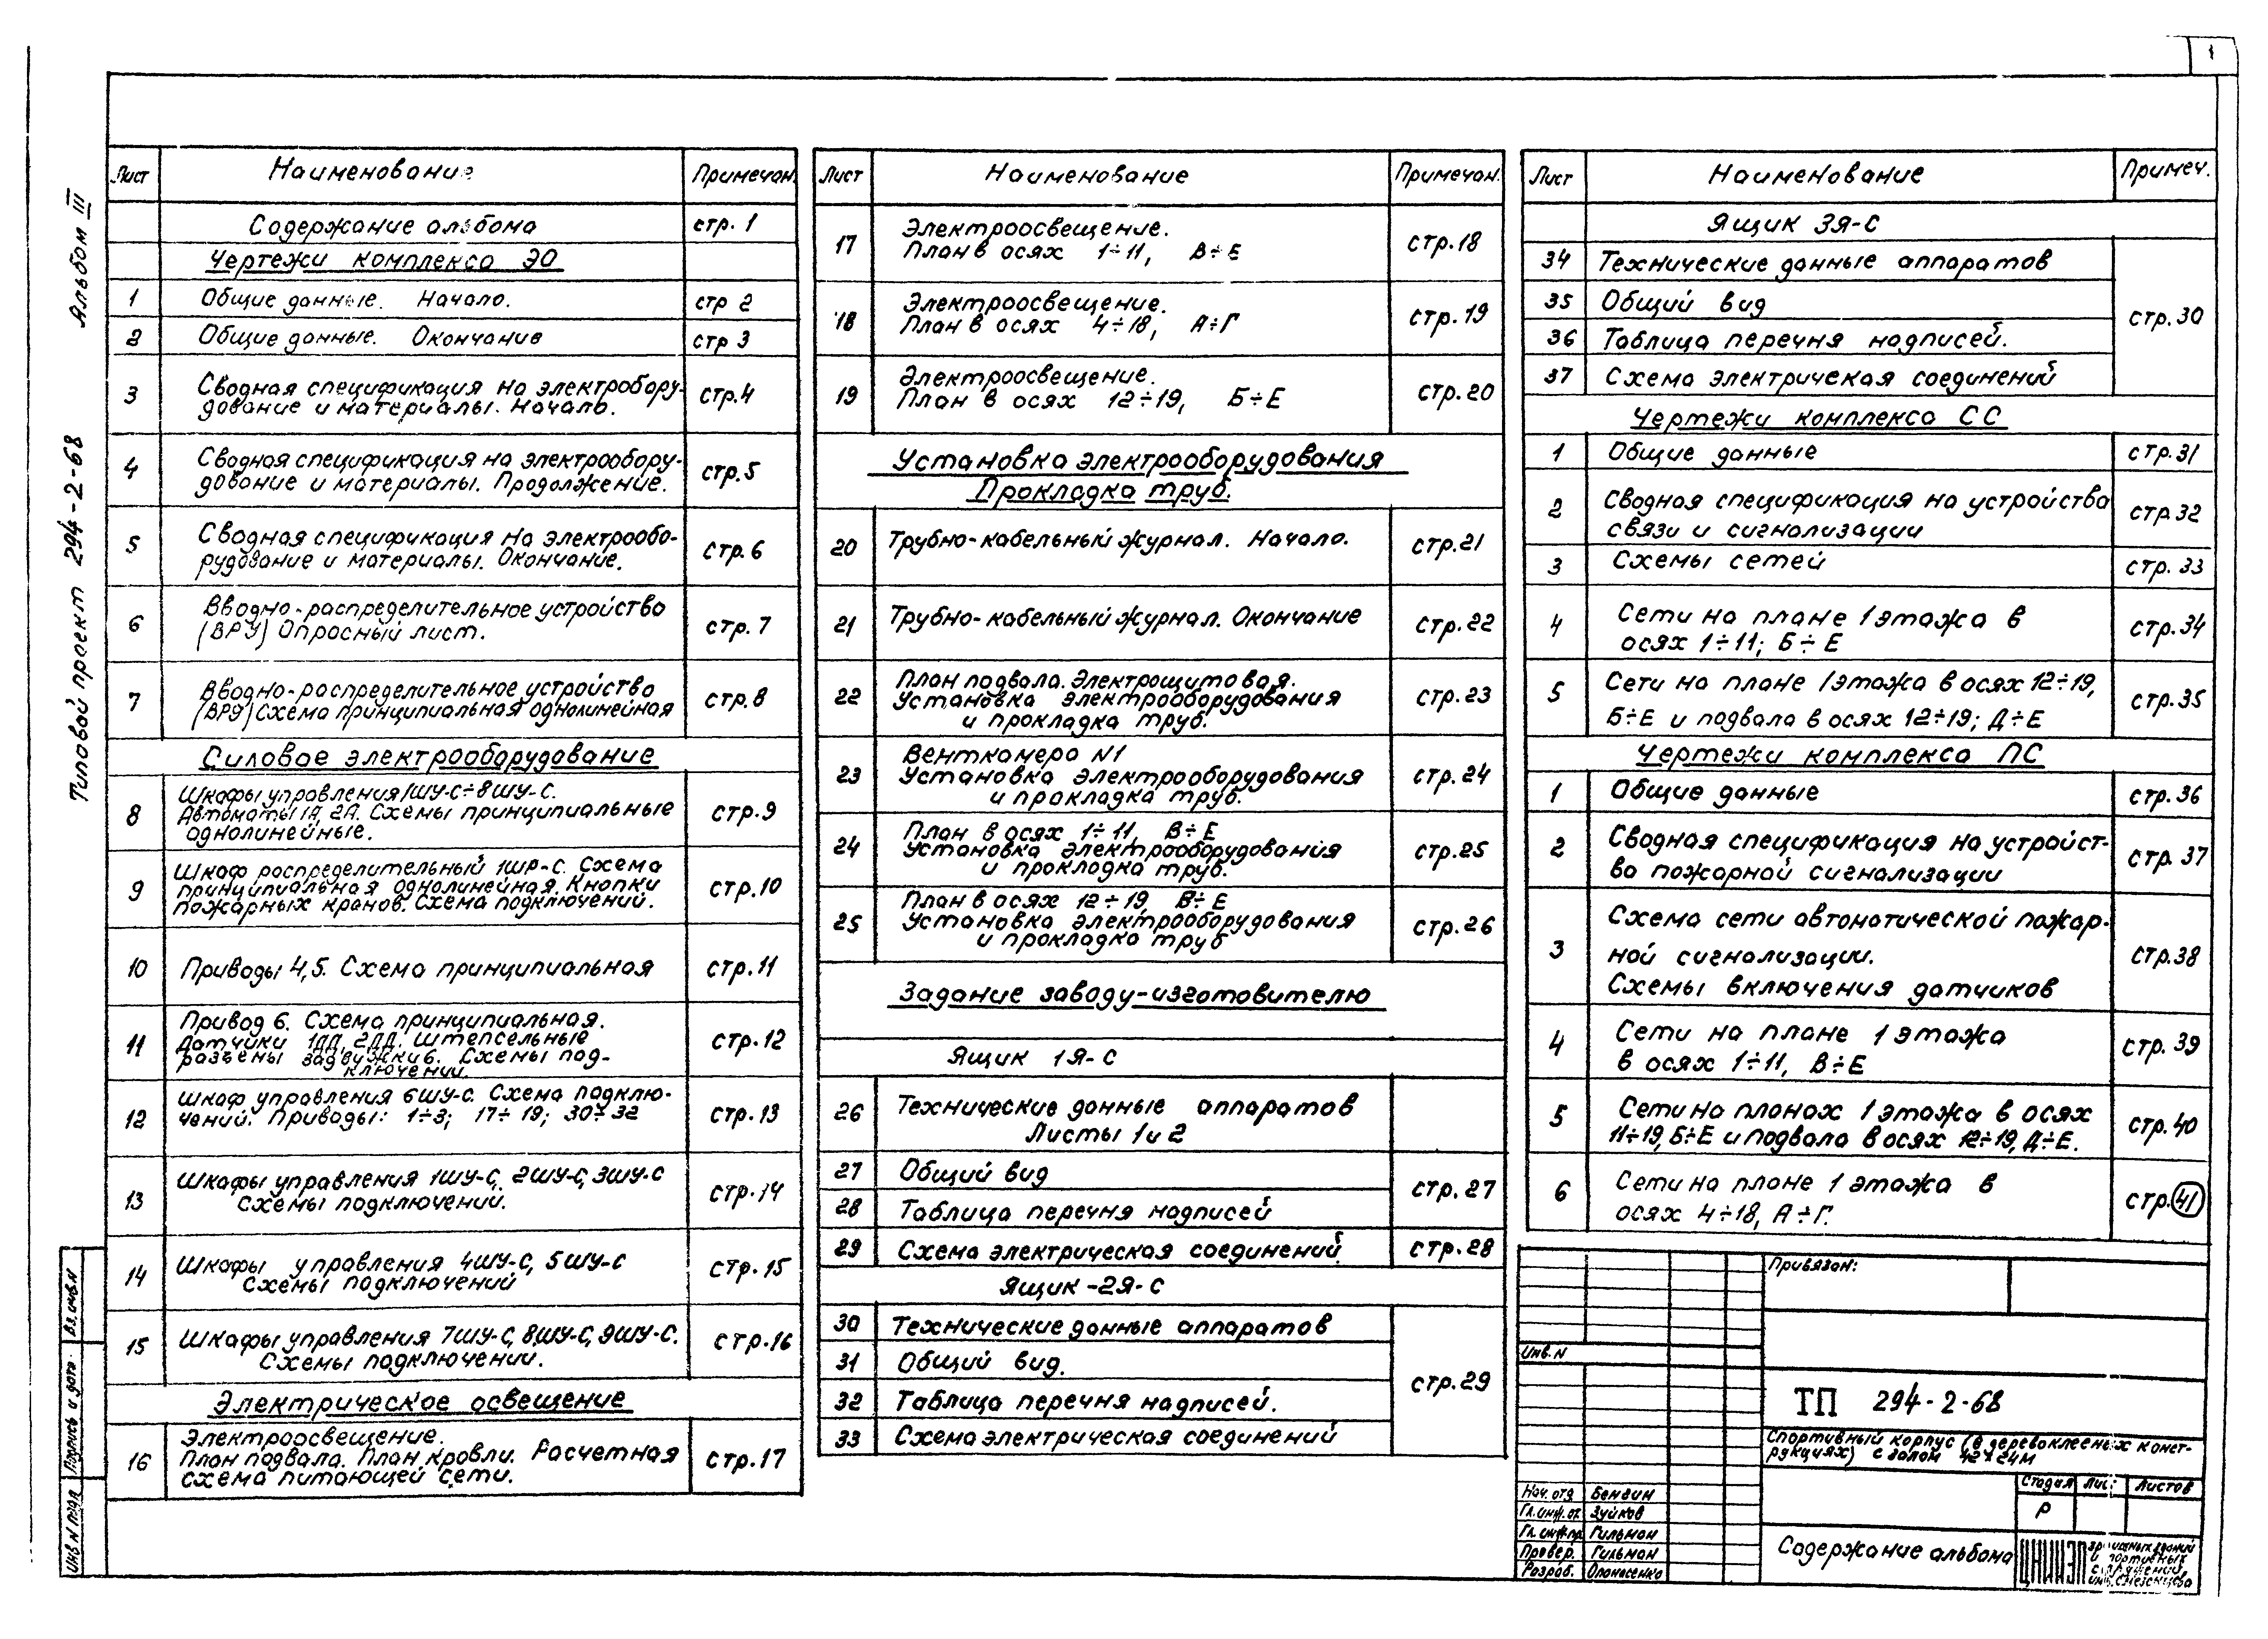 1
Типовой проект 294-2-68 Альбом III
Лист Наименование Примечан.
Содержание альбома стр. 1
Чертежи комплекса ЭО
1 Общие данные. Начало. стр 2
2 Общие данные. Окончание стр 3
3 Сводная спецификация на электробору-
дование и материалы. Начало. стр.4
4 Сводная спецификация на электрообору-
дование и материалы. Продолжение. стр.5
5 Сводная спецификация на электрообо-
рудование и материалы. Окончание. стр. 6
6 Вводно-распределительное устройство
(ВРУ) Опросный лист. стр. 7
7 Вводно-распределительное устройство
(ВРУ) Схема принципиальная однолинейная стр. 8
Силовое электрооборудование
8 Шкафы управления 1шу-с÷8шу-с.
Автоматы 1А, 2А. Схемы принципиальные
однолинейные. стр.9
9 Шкаф распределительный 1шр-с. Схема
принципиальная однолинейная. Кнопки
пожарных кранов. Схема подключений. стр.10
10 Приводы 4,5. Схема принципиальная стр.11
11 Привод 6. Схема принципиальная.
Датчики 1ДД, 2ДД. Штепсельные
разъемы задвижки 6. Схемы под-
ключений. стр.12
12 Шкаф управления 6шу-с. Схема подклю-
чений. Приводы: 1÷3; 17÷19; 30÷32 стр.13
13 Шкафы управления 1шу-с, 2шу-с, 3шу-с
Схемы подключений. стр.14
14 Шкафы управления 4шу-с, 5шу-с
Схемы подключений стр.15
15 Шкафы управления 7шу-с, 8шу-с, 9шу-с.
Схемы подключений. стр.16
Электрическое освещение
16 Электроосвещение.
План подвала. План кровли. Расчетная
схема питающей сети. стр.17
Лист Наименование Примечан.
17 Электроосвещение.
План в осях 1÷11, В÷Е стр.18
18 Электроосвещение.
План в осях 4÷18, А÷Г стр.19
19 Электроосвещение.
План в осях 12÷19, Б÷Е стр.20
Установка электрооборудования
Прокладка труб.
20 Трубно-кабельный журнал. Начало. стр.21
21 Трубно-кабельный журнал. Окончание стр.22
22 План подвала. Электрощитовая.
Установка электрооборудования
и прокладка труб. стр.23
23 Венткамера N1
Установка электрооборудования
и прокладка труб. стр.24
24 План в осях 1÷11, В÷Е
Установка электрооборудования
и прокладка труб. стр.25
25 План в осях 12÷19, В÷Е
Установка электрооборудования
и прокладка труб стр.26
Задание заводу-изготовителю
Ящик 1Я-С
26 Технические данные аппаратов
Листы 1 и 2
27 Общий вид стр.27
28 Таблица перечня надписей
29 Схема электрическая соединений стр.28
Ящик -2Я-С
30 Технические данные аппаратов
31 Общий вид. стр.29
32 Таблица перечня надписей.
33 Схема электрическая соединений
Лист Наименование Примеч.
Ящик 3Я-С
34 Технические данные аппаратов
35 Общий вид стр.30
36 Таблица перечня надписей.
37 Схема электричекая соединений
Чертежи комплекса СС
1 Общие данные стр.31
2 Сводная спецификация на устройства
связи и сигнализации стр.32
3 Схемы сетей стр. 33
4 Сети на плане 1 этажа в
осях 1÷11; Б÷Е стр.34
5 Сети на плане 1 этажа в осях 12÷19,
Б÷Е и подвала в осях 12÷19; Д÷Е стр.35
Чертежи комплекса ПС
1 Общие данные стр.36
2 Сводная спецификация на устройст-
ва пожарной сигнализации стр. 37
3 Схема сети автоматической пожар-
ной сигнализации.
Схемы включения датчиков стр.38
4 Сети на плане 1 этажа
в осях 1÷11, В÷Е стр. 39
5 Сети на планах 1 этажа в осях
11÷19, Б÷Е и подвала в осях 12÷19, Д÷Е. стр.40
6 Сети на плане 1 этажа в
осях 4÷18, А÷Г. стр.41
Привязан:
Инв. N
ТП 294-2-68
Спортивный корпус (в деревоклееных конст-
рукциях) с залом 42х24м
Стадия Лист Листов
Р
Нач. отд Бендин
Гл. инж. от. Зуйков
Гл. инж. пр. Гильман
Провер. Гильман
Разраб. Опанасенко
Содержание альбома
ЦНИИЭП зрелищных зданий
и спортивных
сооружений
Инв N подл Подпись и дата Вз. инв. N